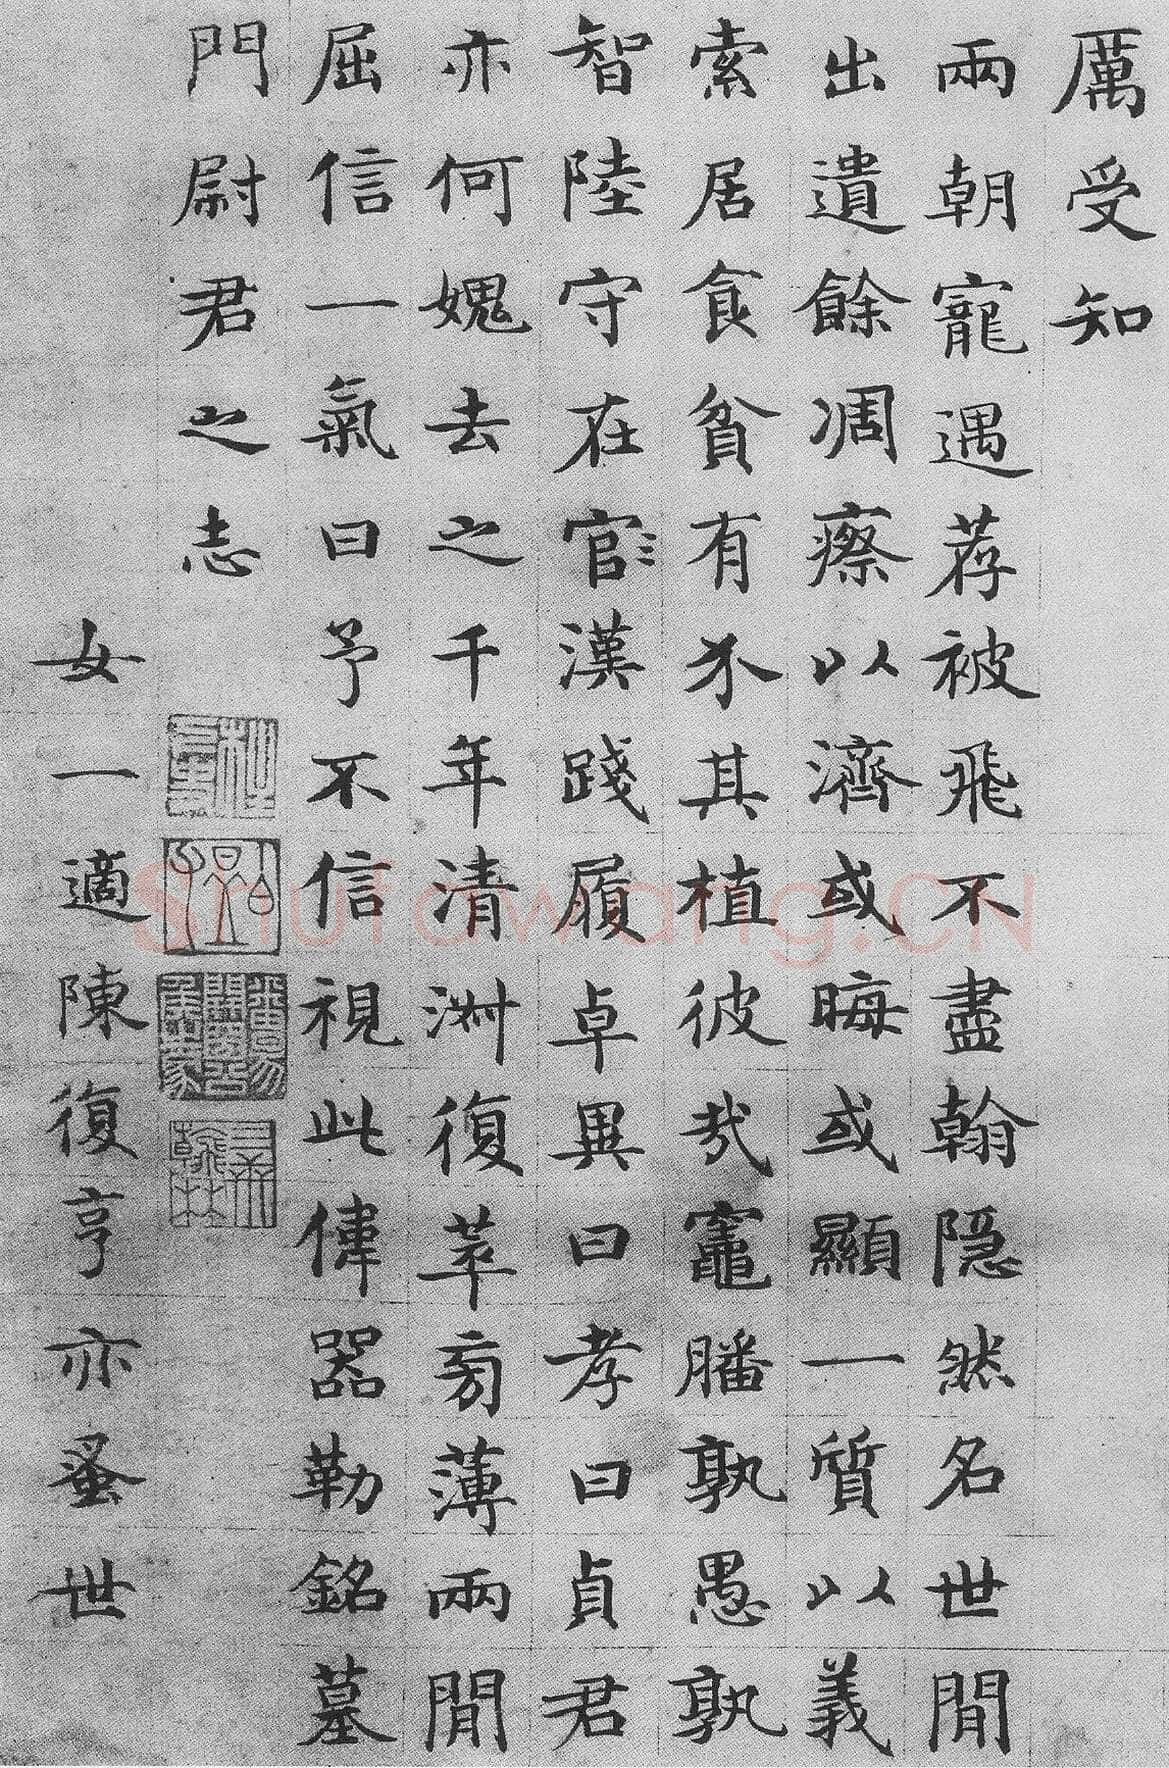 厲受知
兩朝寵遇荐被飛不盡翰隱然名世閒
出遺餘凋瘵以濟或晦或顯一質以義
索居食貧有不其植彼哉竈膰孰愚孰
智陸守在官漢踐履卓異曰孝曰貞君
亦何媿去之千年清淵復萃旁薄兩閒
屈信一氣曰予不信視此俥器勒銘墓
門尉君之志
女一適陳復亨亦蚤世
Shufawang.CN